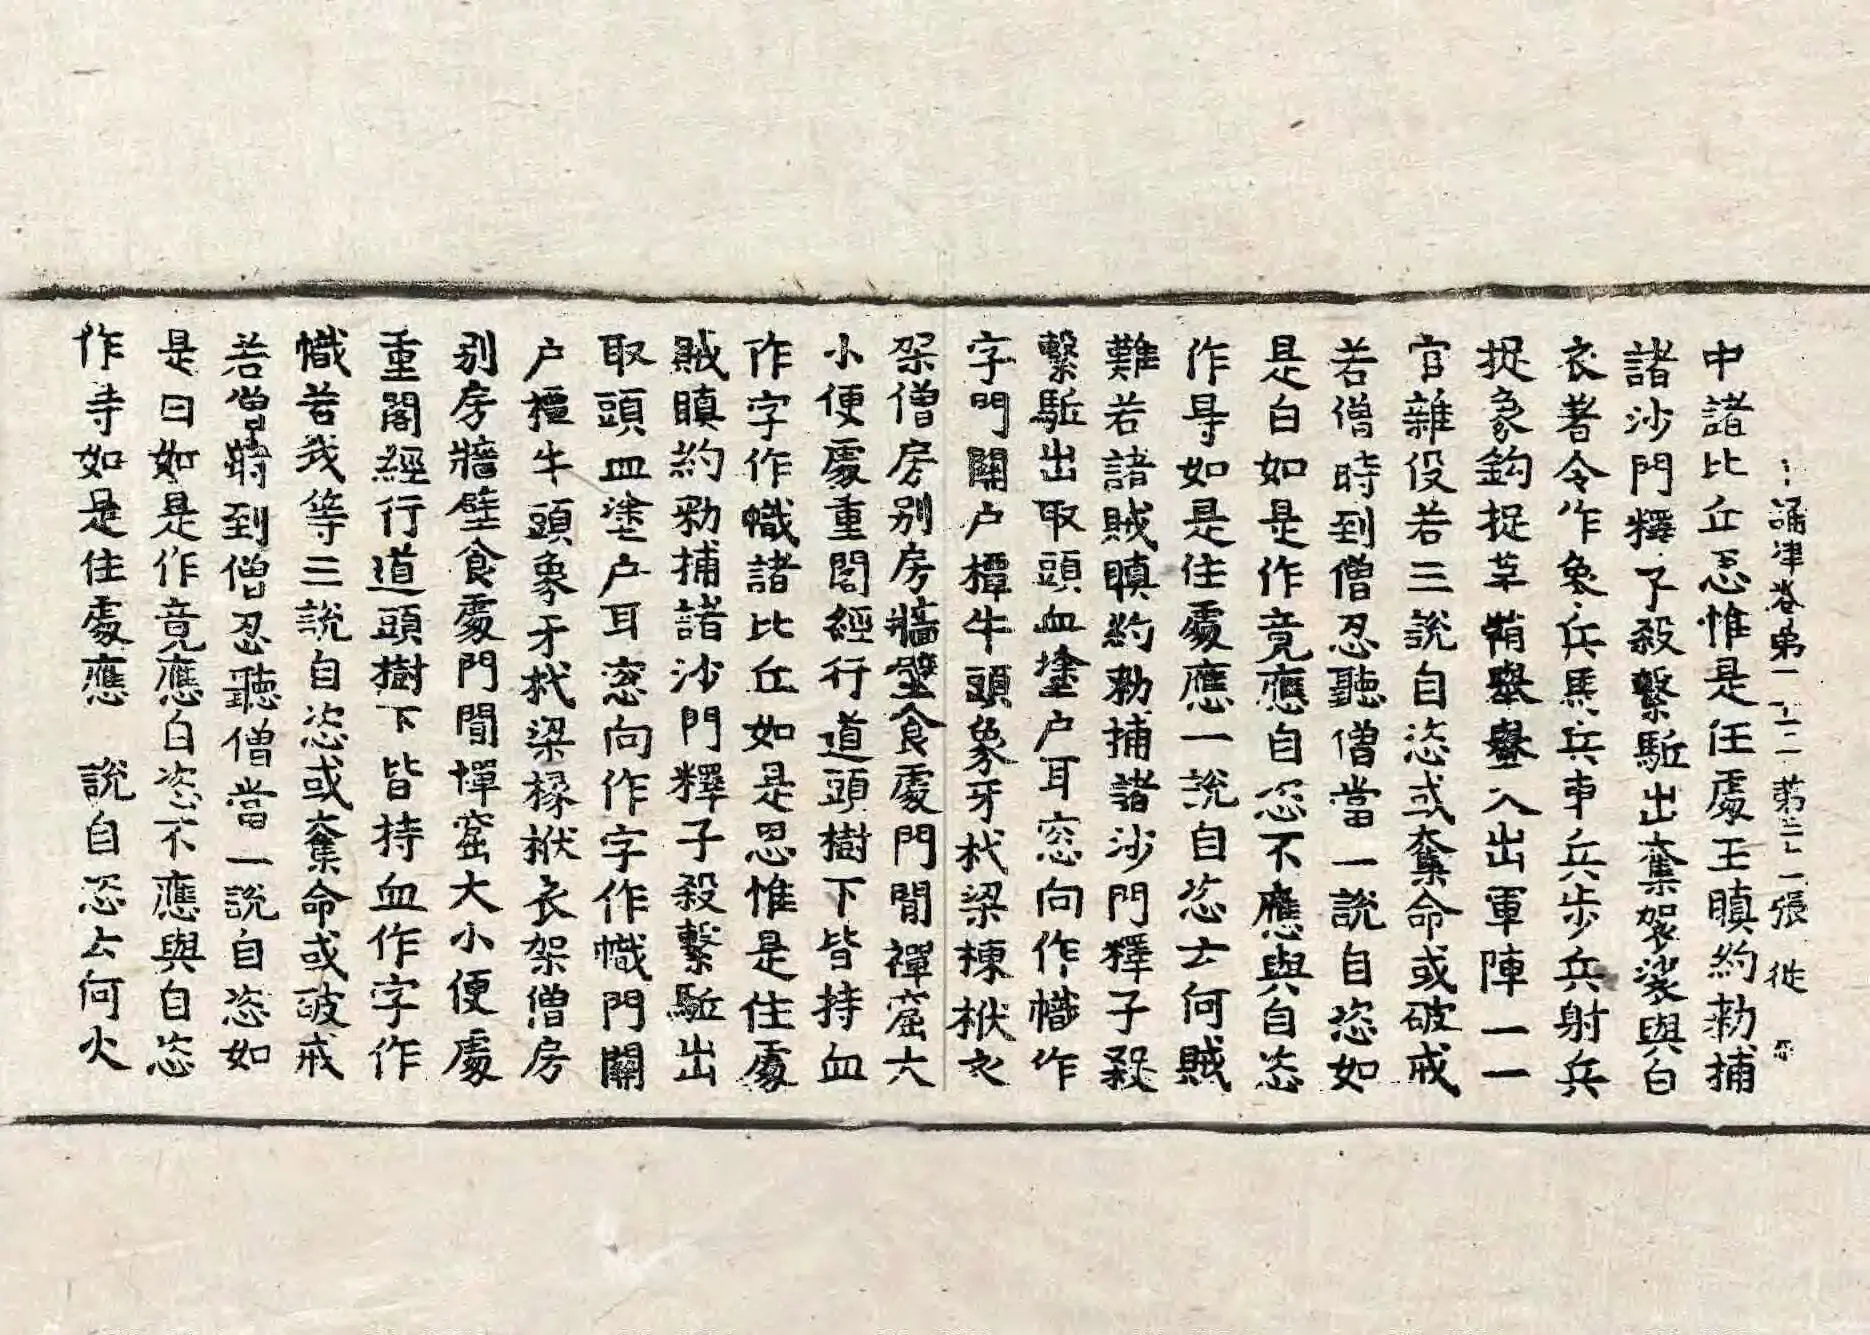 誦律卷第二十二 第二一張 從
中諸比丘忍惟是住處王瞋約勑捕
諸沙門釋子殺繫駈出奪袈裟與白
衣著令作象兵馬兵車兵步兵射兵
捉象鈎捉草鞘轝轝入出軍陣一一
官雜伇若三說自恣或奪命或破戒
若僧時到僧忍聽僧當一說自恣如
是白如是作竟應自恣不應與自恣
作㝵如是住處應一說自恣云何賊
難若諸賊瞋約勑捕諸沙門釋子殺
繫駈出取頭血塗户耳窓向作幟作
字門關户橝牛頭象牙杙梁棟栿衣
架僧房别房牆壁食處門閒禪窟大
小便處重閣經行道頭樹下皆持血
作字作幟諸比丘如是思惟是住處
賊瞋約勑捕諸沙門釋子殺繫駈出
取頭血塗户耳窓向作字作幟門關
户橝牛頭象牙杙梁椽栿衣架僧房
别房牆壁食處門閒憚窟大小便處
重閣經行道頭樹下皆持血作字作
幟若我等三說自恣或奪命或破戒
若僧時到僧忍聽僧當一說自恣如
是白如是作竟應白恣不應與自恣
作寺如是住處應 說自恣云何火